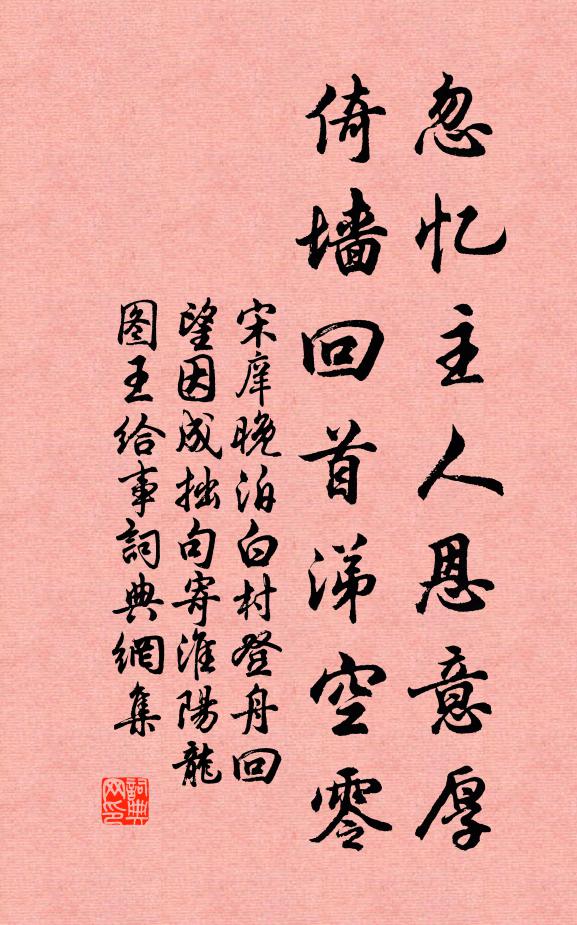 忽忆主人恩意厚
倚墙回首涕空零
宋庠晚泊白村登舟回
望因成拙句寄淮陽龍
图王给事詞典網集
詞典网印